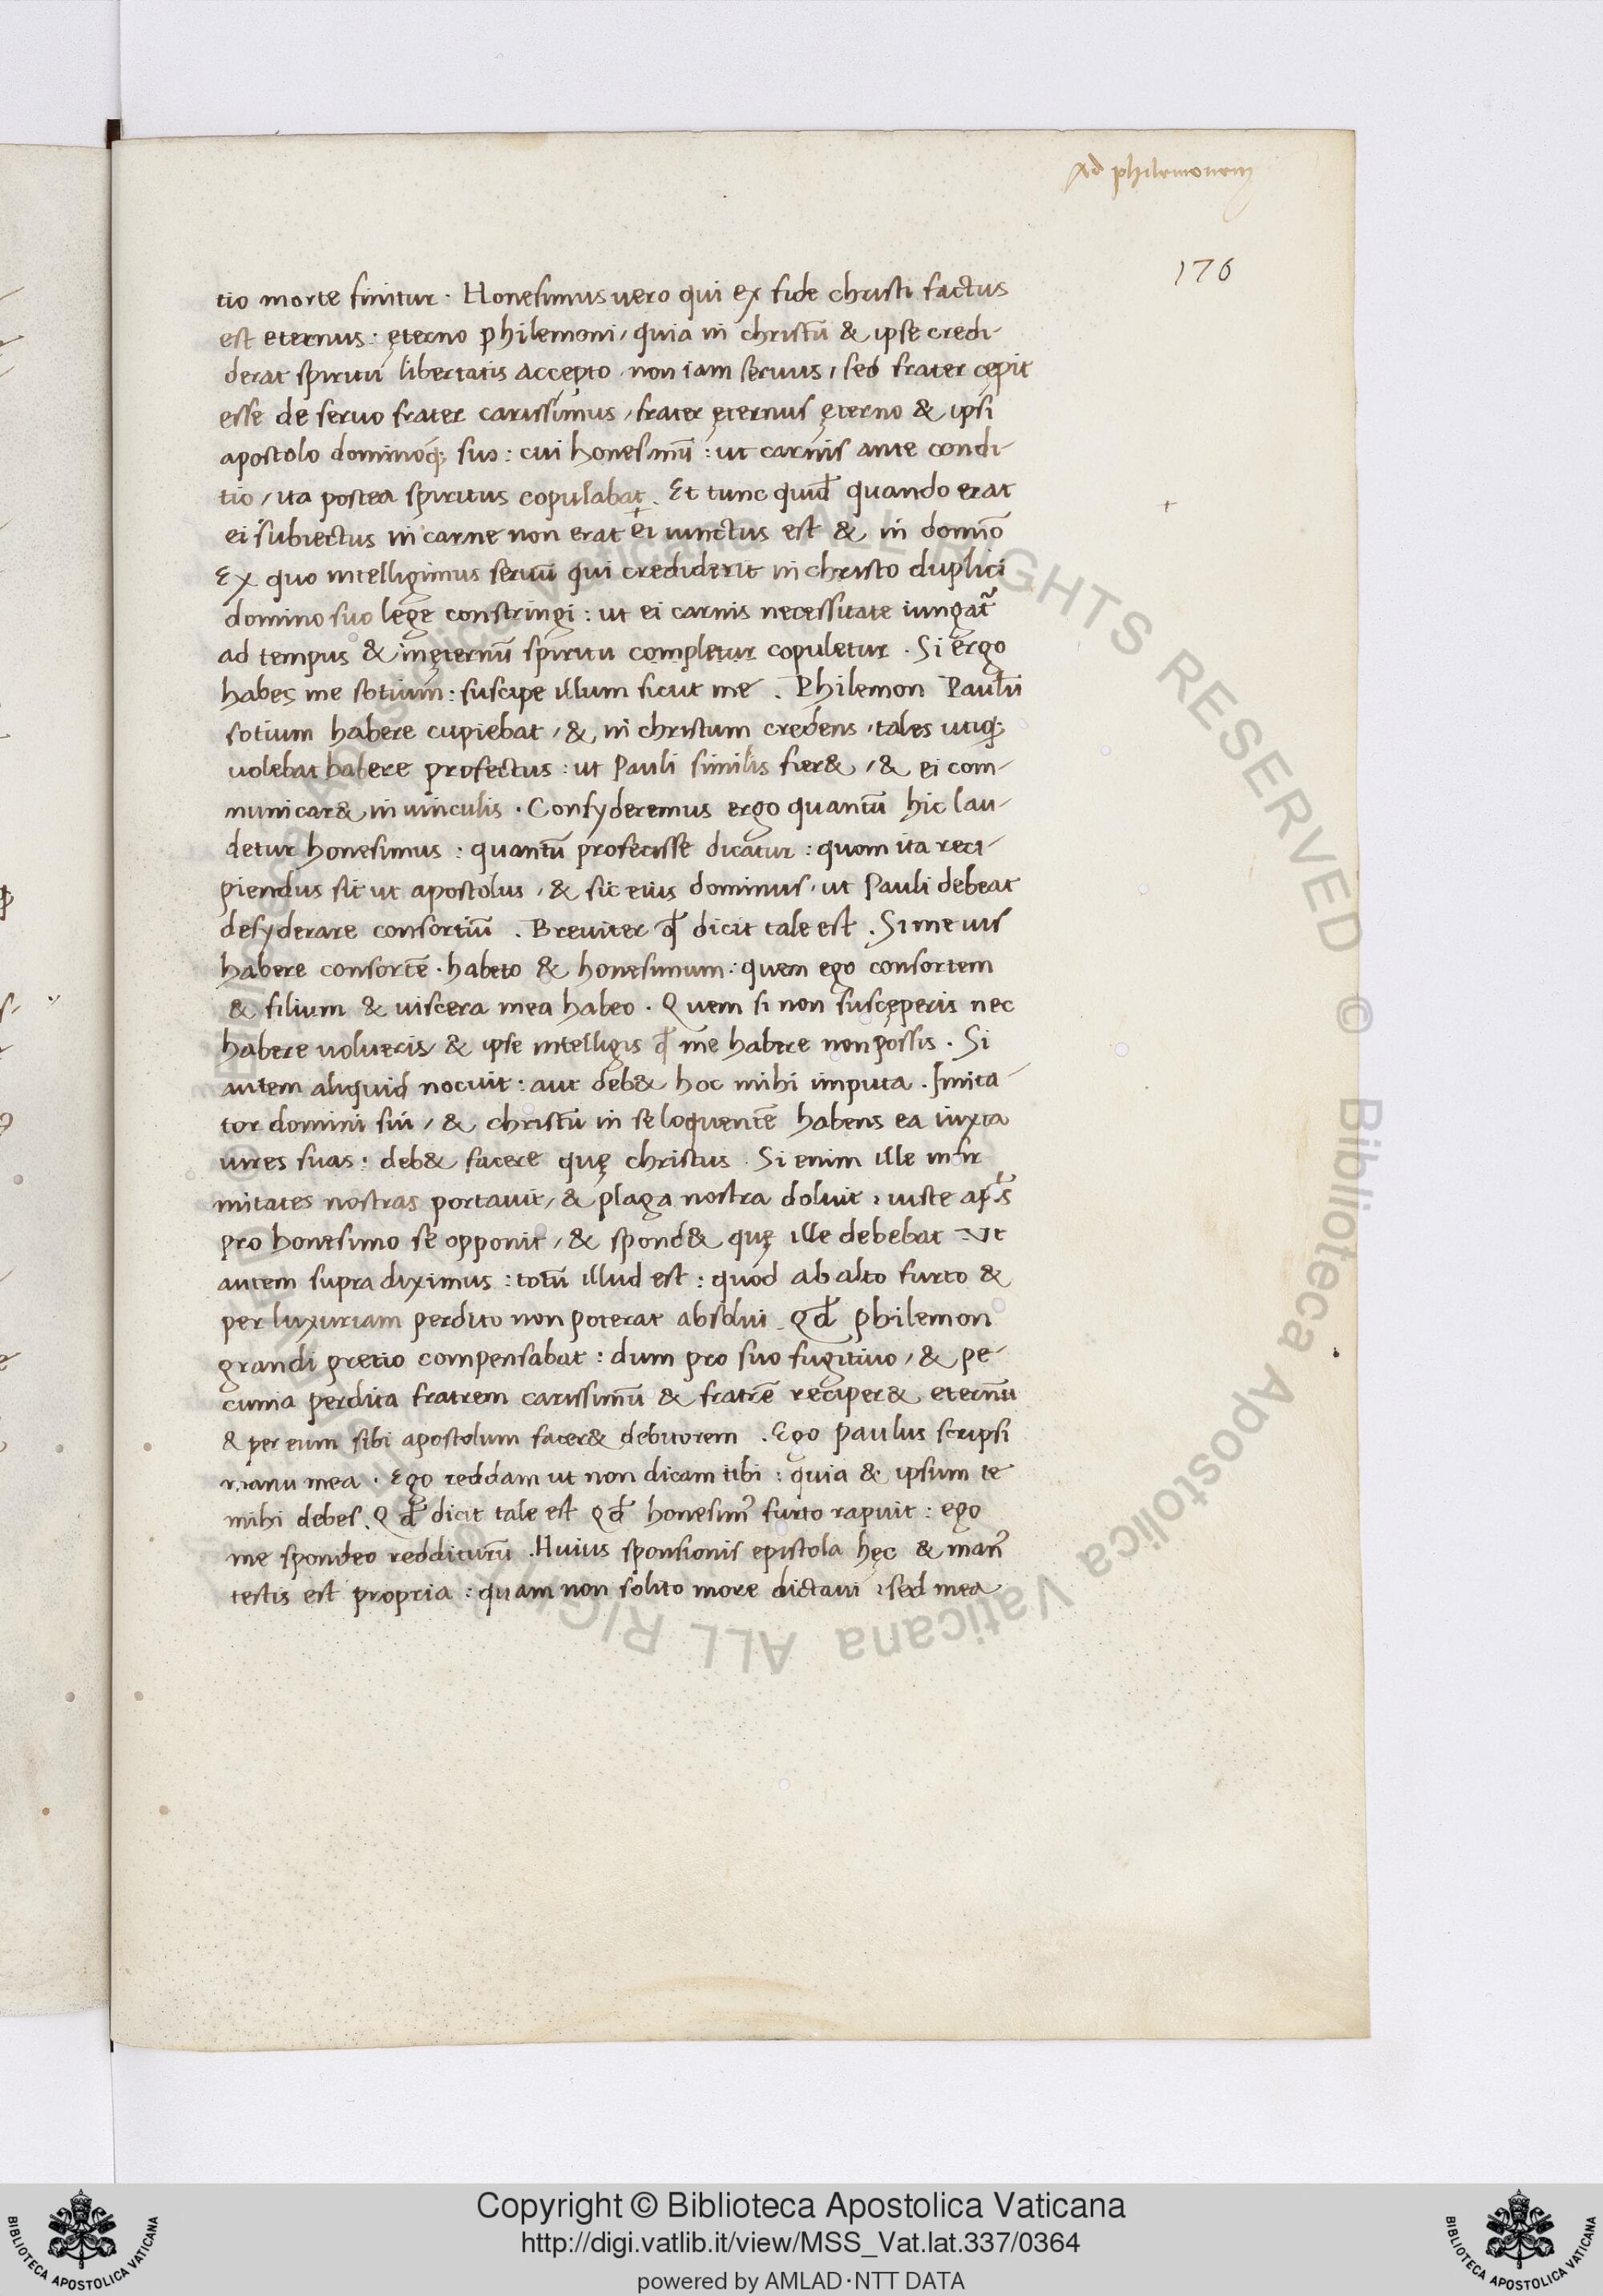 Ad philemonem
176
tio morte finitur. Honesimus uero qui ex fide christi factus
est eternus: ęterno philemoni, quia in christū & ipse credi-
derat spiritu libertatis accepto, non iam seruus, sed frater cępit
esse de seruo frater carissimus, frater ęternus ęterno & ipsi
apostolo dominoq; suo: cui honesimū: ut carnis ante condi-
tio, ita postea spiritus copulabat. Et tunc quid̄ quando erat
ei subiectus in carne non erat + ei iunctus est & in domīo +
Ex quo intelligimus seruū qui crediderit in christo duplici
domino suo lege constringi: ut ei carnis necessitate iungat᷑
ad tempus & inęternū spiritu completur copuletur. Si ergo
habes me sotium: suscipe illum sicut me. Philemon Paulū
sotium habere cupiebat, & in christum credens, tales utiq;
uolebat habere profectus: ut Pauli similis fier&, & ei com-
municar& in uinculis. Consyderemus ergo quantū hic lau-
detur honesimus: quantū profecisse dicatur: quom ita reci-
piendus sit ut apostolus, & sic eius dominus, ut Pauli debeat
desyderare consortiū. Breviter qđ dicit tale est. Si me uis
habere consortē. habeto & honesimum: quem ego consortem
& filium & uiscera mea habeo. Quem si non suscęperis nec
habere uolueris, & ipse intelligis qđ me habere non possis. Si
autem aliquid nocuit: aut deb& hoc mihi imputa. Imita-
tor domini sui, & christū in se loquentē habens ea iuxta
uires suas: deb& facere quę christus. Si enim ille infir
mitates nostras portauit, & plaga nostra doluit, iuste ap̄s
pro honesimo se opponit, & spond& quę ille debebat Vt
autem supra diximus: totū illud est: quod ab alto furto &
per luxuriam perdito non poterat absolui. Qđ philemon
grandi pretio compensabat: dum pro suo fugitiuo, & pe-
cunia perdita fratrem carissimū & fratrē reciper& eternū
& per eum sibi apostolum facer& debitorem. Ego Paulus scripsi
manu mea. Ego reddam ut non dicam tibi: quia & ipsum te
mihi debes. Qđ dicit tale est Qđ honesim᾽ furto rapuit: ego
me spondeo redditurū. Huius sponsionis epistola hęc & man᾽
testis est propria: quam non solito more dictaui, sed mea
Copyright © Biblioteca Apostolica Vaticana
http://digi.vatlib.it/view/MSS_Vat.lat.337/0364
powered by AMLAD·NTT DATA